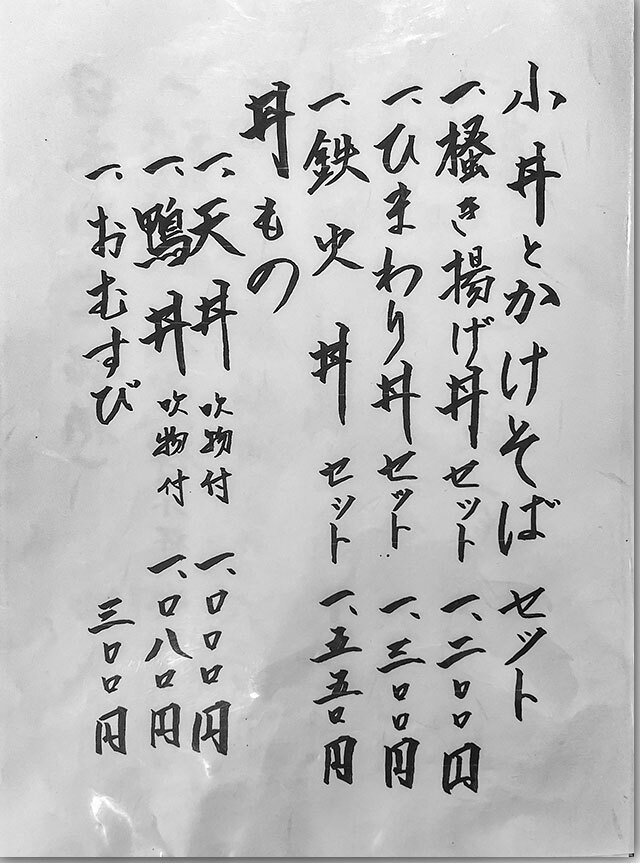 小丼とかけそばセット
一、掻き揚げ丼セット 一、二〇〇円
一、ひまわり丼セット 一、三〇〇円
一、鉄火丼セット 一、五五〇円
丼もの
一、天丼 吸物付 一、〇〇〇円
一、鴨丼 吸物付 一、〇八〇円
一、おむすび 三〇〇円